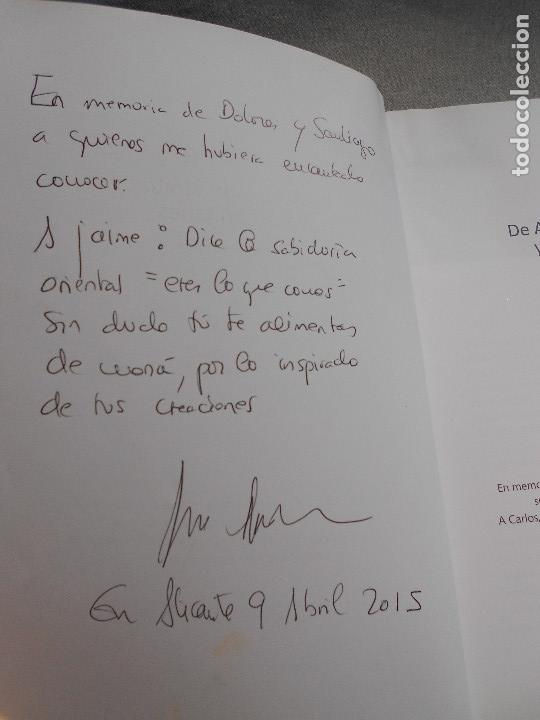 En memoria de Dolores y Santiago
a quienes me hubiera encantado
conocer.
A jaime: Dice la sabiduría
oriental =eres lo que comes=
Sin duda tú te alimentas
de maná, por lo inspirado
de tus creaciones
En Alicante 9 Abril 2015
De A
En memo
A Carlos,
todocoleccion